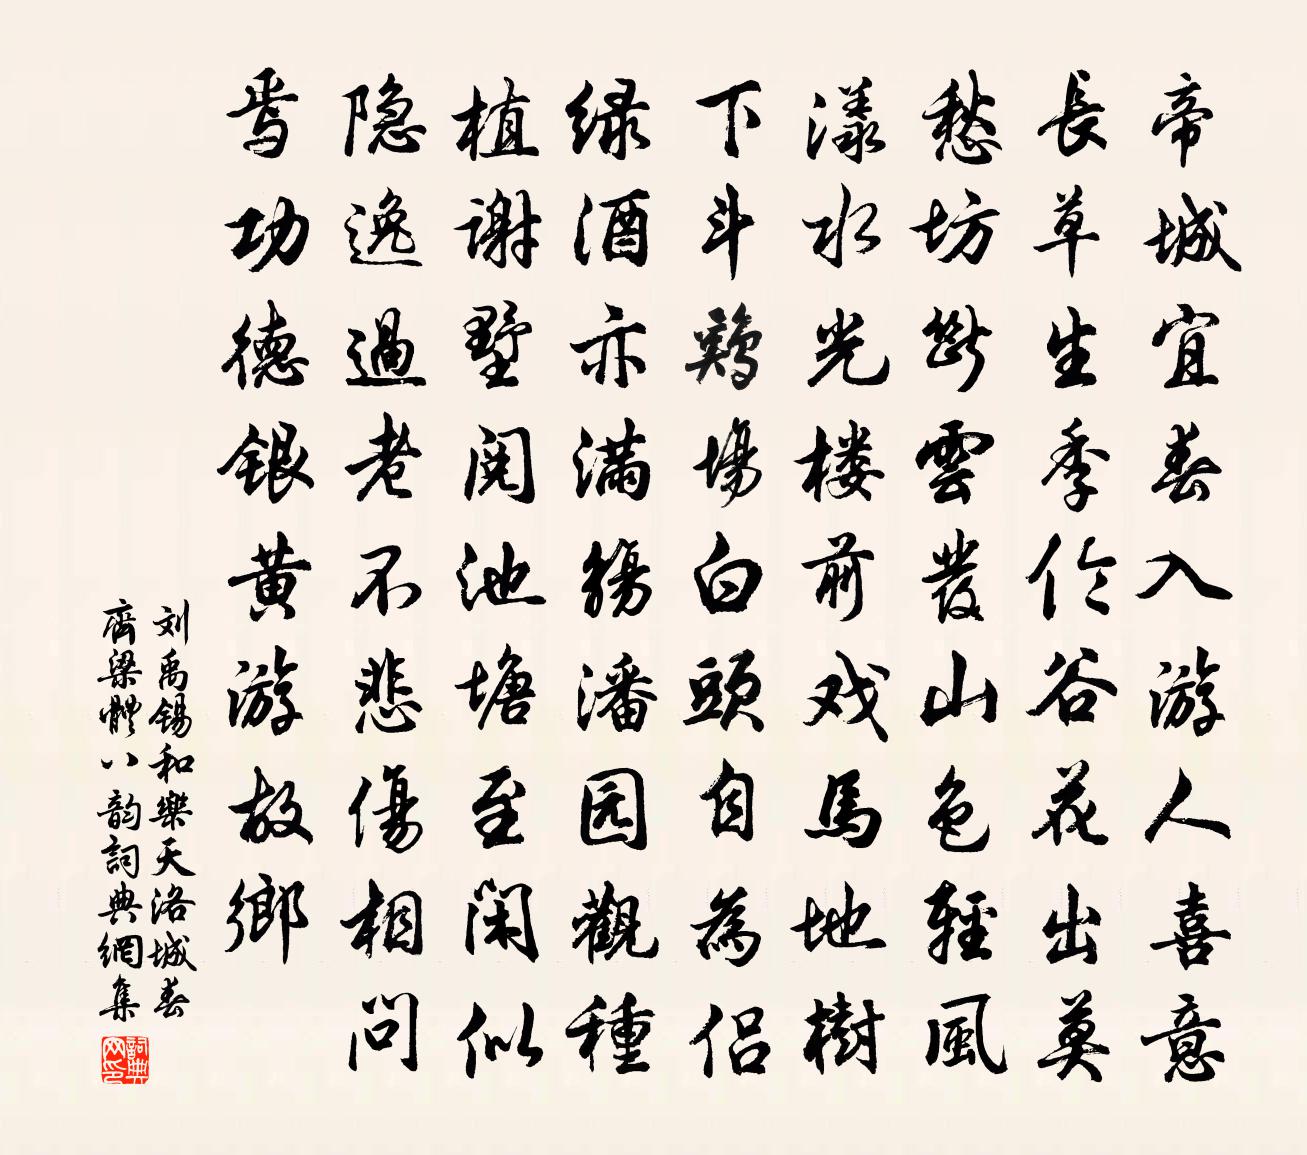 帝城宜春入游人喜意
長草生季伦谷花出莫
愁坊断雲發山色輕風
漾水光楼前戏馬地樹
下斗鶏場白頭自為侣
绿酒亦满觞潘园觀種
植谢墅阅池塘至闲似
隐逸過老不悲傷相问
焉功德银黄游故鄉
刘禹锡和樂天洛城春
齊梁體八韵詞典網集
詞典网印